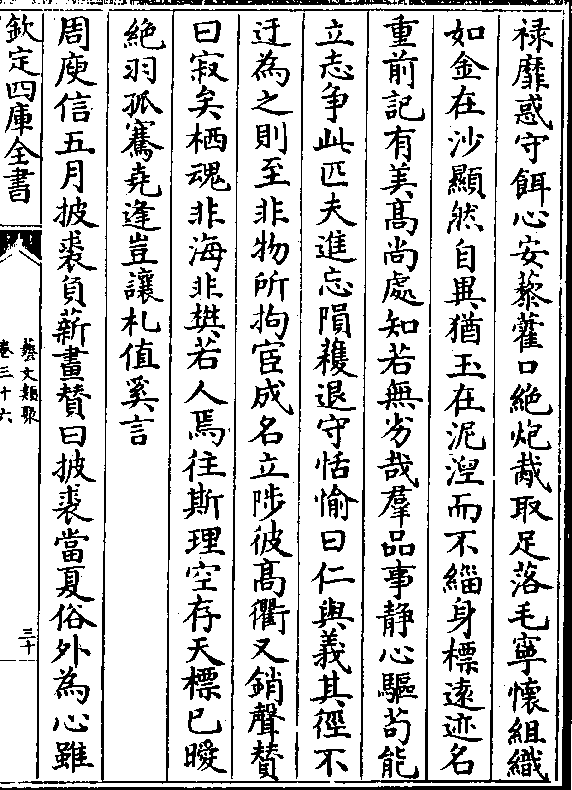 祿靡惑守餌心安藜藿口絶炮胾取足落毛寧懷組織
如金在沙顯然自異猶玉在泥涅而不緇身標遠迹名
重前記有美高尚處知若無劣哉羣品事静心驅苟能
立志争此匹夫進忘隕穫退守恬愉曰仁與義其徑不
迂為之則至非物所拘宦成名立陟彼高衢又銷聲賛
曰寂矣栖魂非海非樊若人焉往斯理空存天標已曖
絶羽孤騫堯逢豈讓札值奚言
周庾信五月披裘負薪畫賛曰披裘當夏俗外為心雖
欽定四庫全書
藝文類聚
卷三十六
三十